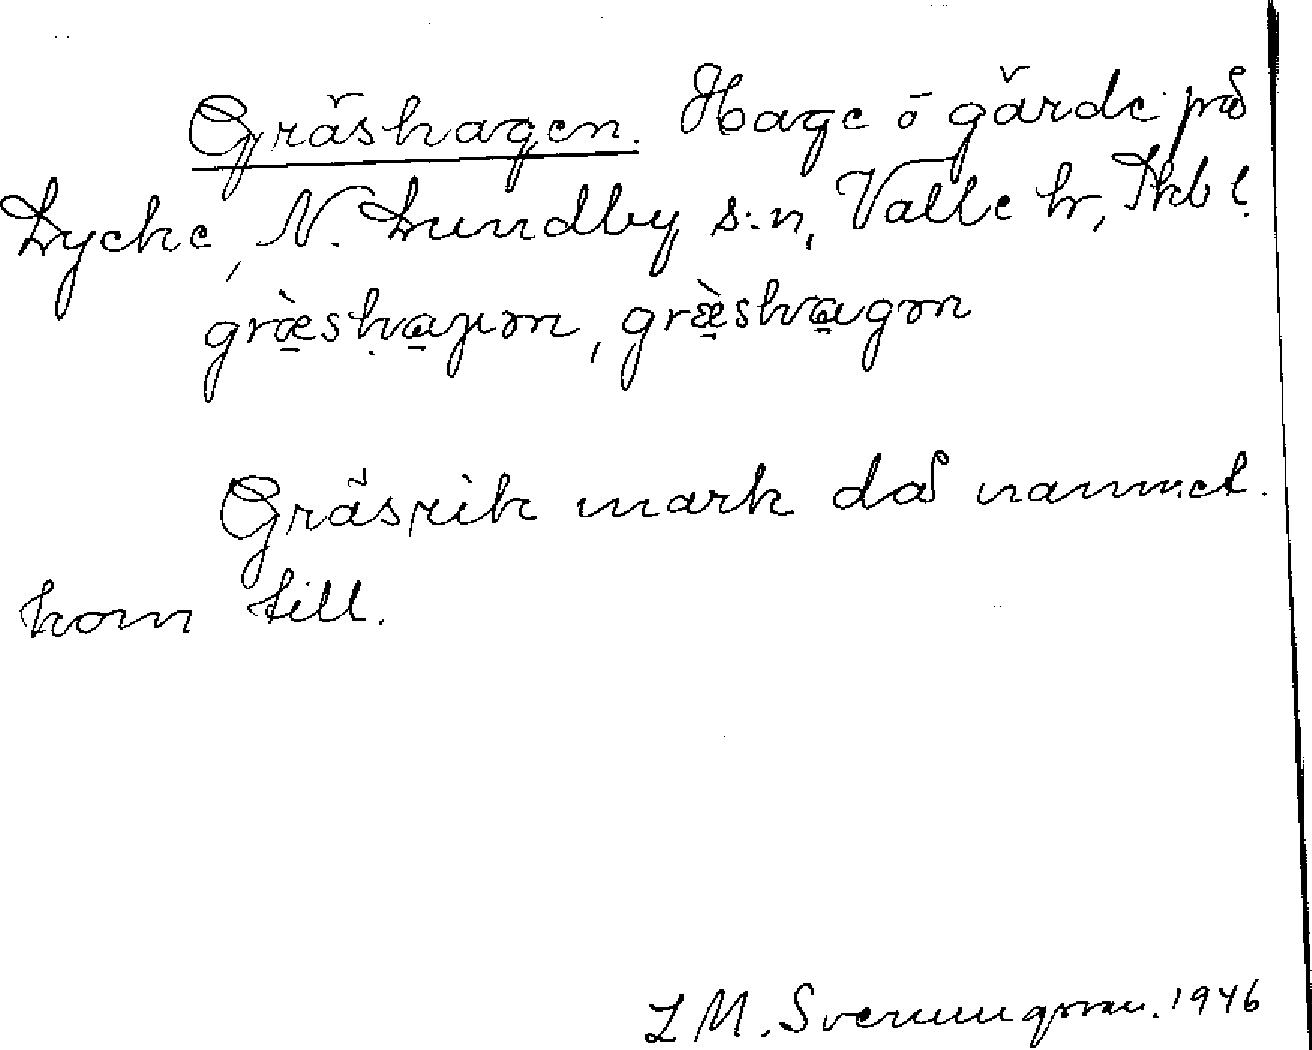 Gräshagen. Hage o gärde på
Lycke, N. Lundby s:n, Valle hr, Skb l.
græ̀shaɲən, græ̀shagən
Gräsrik mark då namnet.
kom till.
L M. Svenungsson. 1946